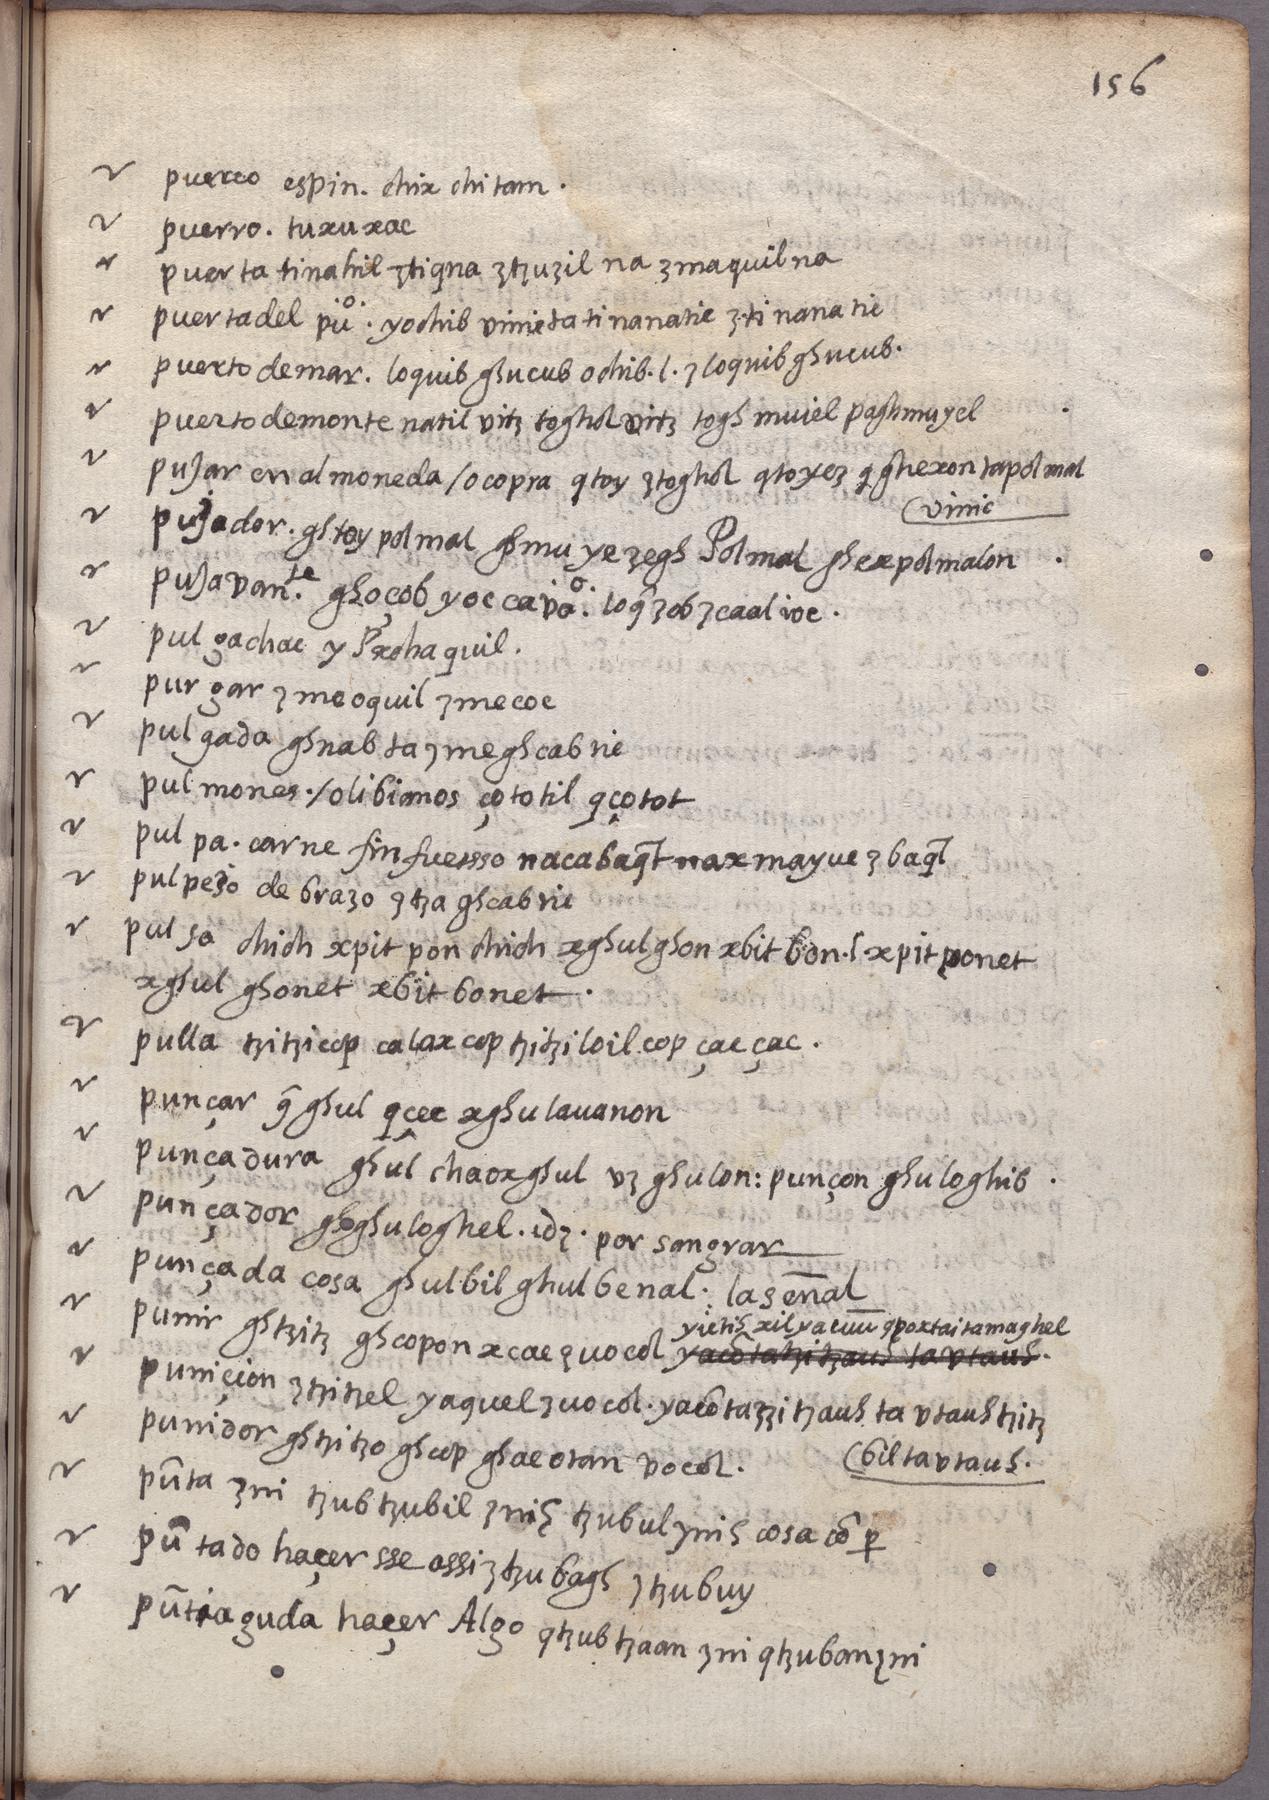 156
puerco espin. chix chitam.
puerro. tuxuxac
puerta tinahil ztiqna ztzuzil na zmaquilna
puertadel pu.º yochib vinicta tinanatic z.ti nana tic
puerto demar. loquib ghucub ochib.l. zloquib ghucub.
puerto demonte natil vitz toghol vitz togh muiel paghmuyel
puJar en almoneda /ocopra qtoy ztoghol qtoyez qghexon tapolmal
(vinic
puJador. ghtoy polmal ghmu ye zegh Polmal ghexpolmalon
puJavan.te ghoçob yoc cavaº. loq̃zobzcaal voc.
pul gachac y Pxchaquil.
pur gar zmeoquil zmecoc
pul gada ghnab tazmeghcabric
pul mones./olibianos çototil qçotot
pul pa. carne sin huesso nacabaq̃t naxmayuc zbaq̃l
pulpejo de brazo ztza ghcabric
pul so chich xpit pon chich xghulghon xbit bon.l.xpit ponet
xghul ghonet xbit bonet.
pulla tzitzicop calaxcop tzitziloil cop çac çac.
punçar q̃ghul qçec xghulauanon
punçadura ghul chaoxghul vz ghulon: punçon ghuloghib.
punçador ghghuloghel. idz. por sangrar
punçada cosa ghulbil ghulbenal. la señal
punir ghtzitz ghcopon xcacquocol
punicion ztzitzel yaquelzuocol.
punidor ghtzitzo ghcop ghac otan vocol. (bil ta vtauh.
pũta zni tzubtzubil znih tzubulznih cosa cõ p
pũtado haçer sse assi ztzubagh ztzubuy
pũtiaguda haçer Algo qtzubtzaan zni qtzubanzni